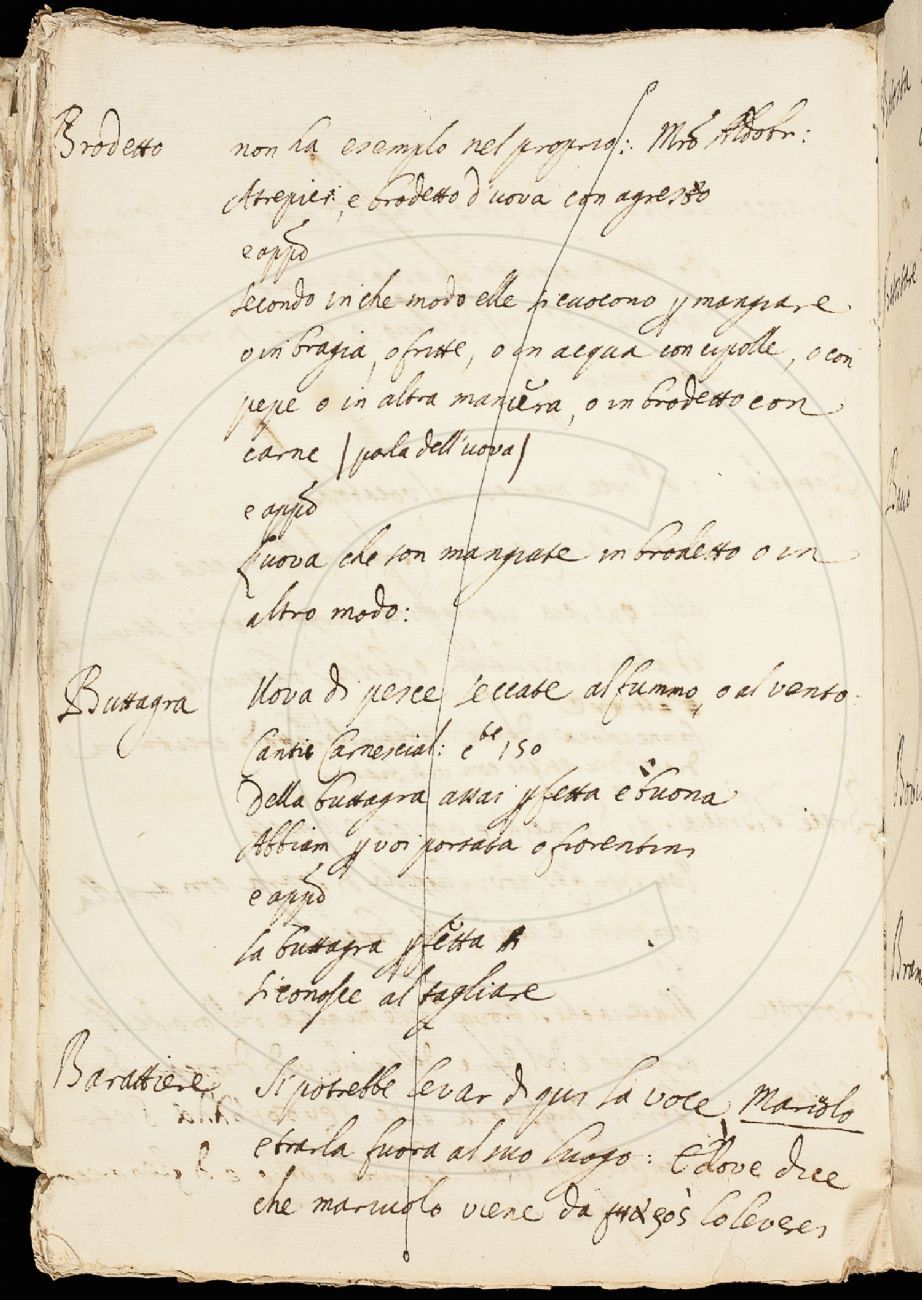 Brodetto non ha esemplo nel proprio: Mro Aldobr:
Atrepici, e brodetto d'uova con agresto
e appo
secondo in che modo elle si cuocono p mangiare
o in bragia, o fritte, o in acqua con cipolle, o con
pepe o in altra maniera, o in brodetto con
carne (parla dell'uova)
e appo
L'uova che son mangiate in brodetto o in
altro modo:
Buttagra Uova di pesce seccate al fummo, o al vento.
Canti Carnescial: cte 150
Della buttagra assai pfetta e buona
Abbiam p voi portata o fiorentini
e appo
la buttagra pfetta
si conosce al tagliare
Barattiere Si potrebbe levar di qui la voce Mariolo
e trarla fuora al suo luogo: E dove dice
che mariuolo viene da lo leverei